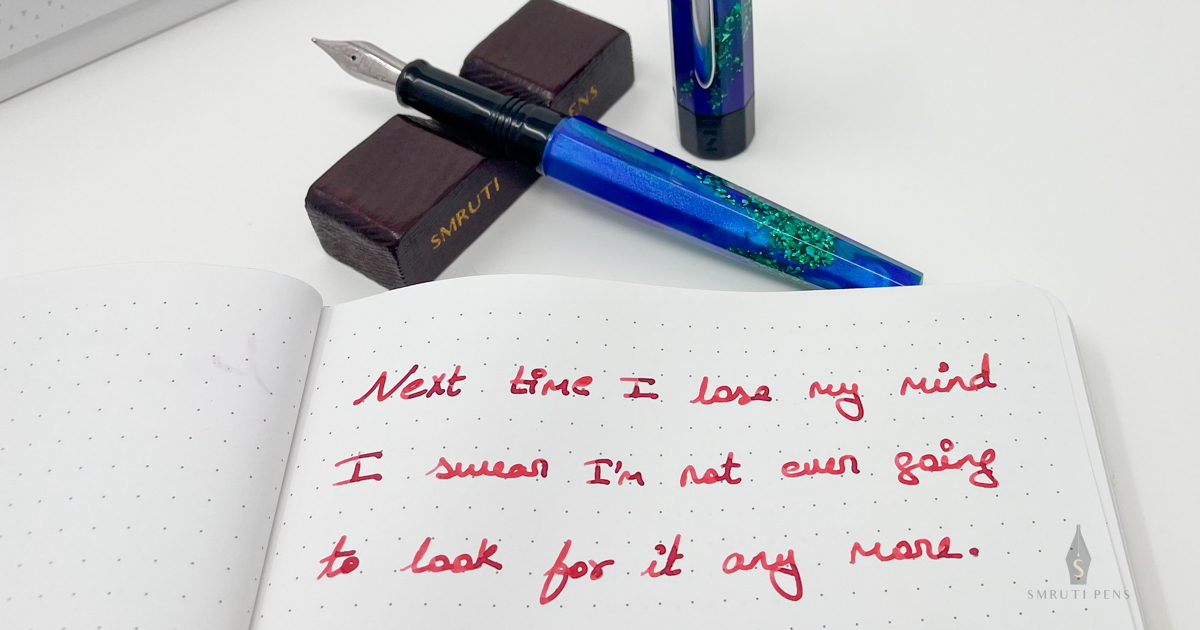 SMRUTI PENS
Next time I lose my mind
I swear I'm not even going
to look for it any more.
S
SMRUTI PENS